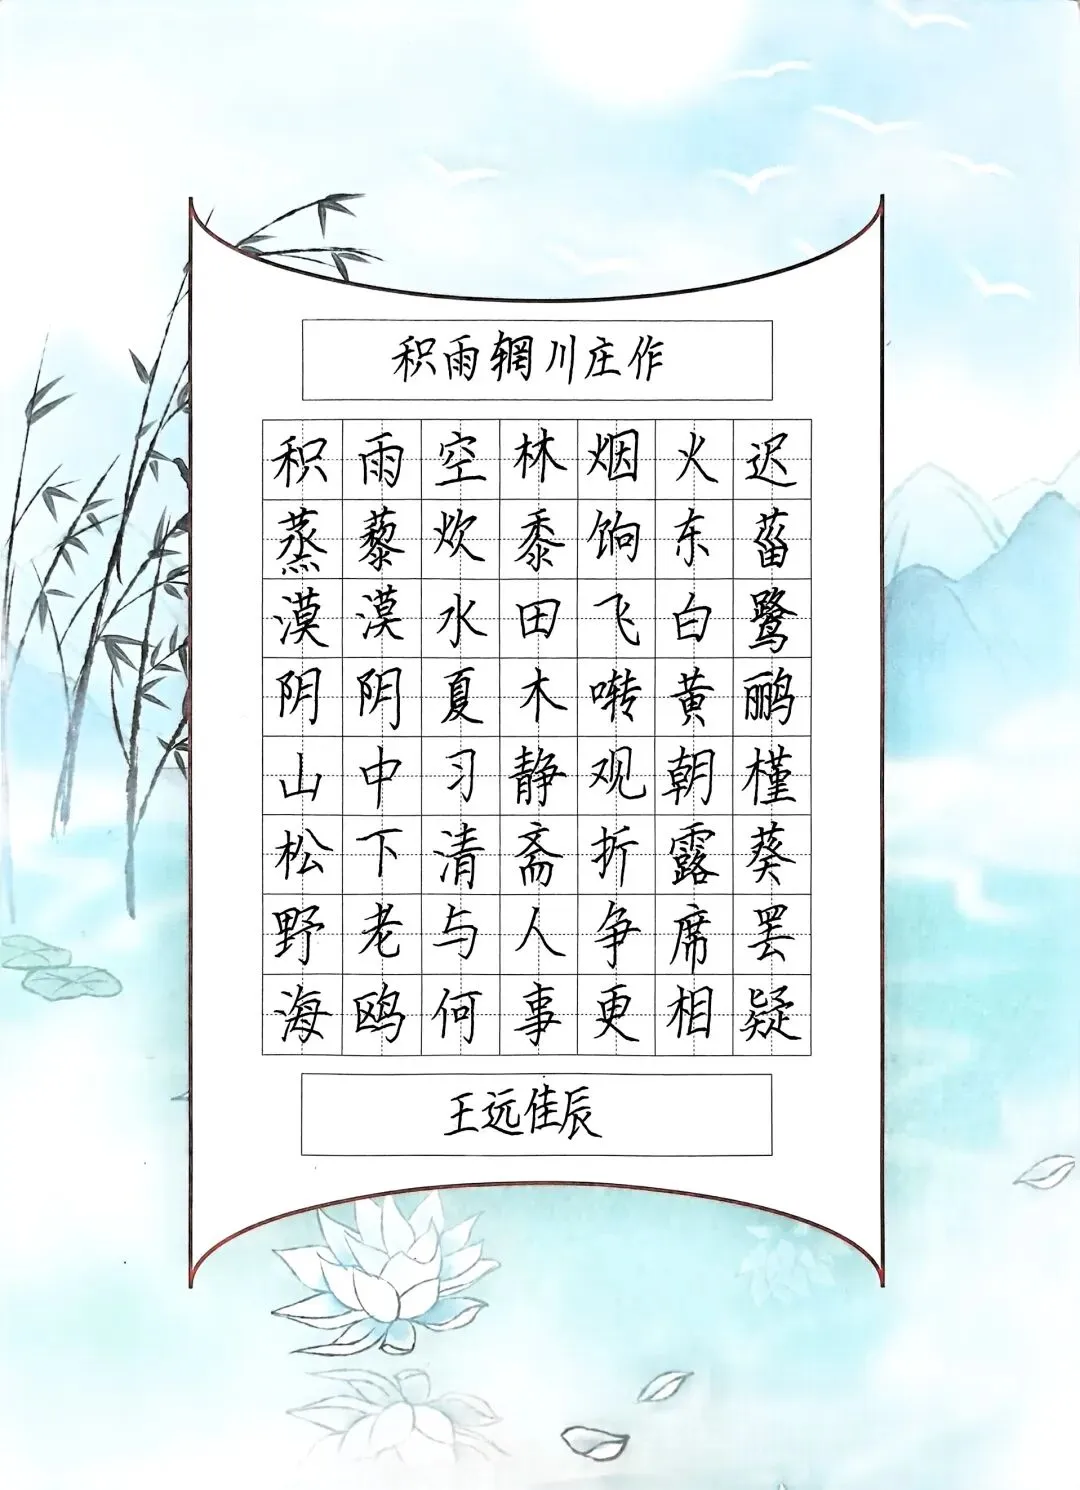 积雨辋川庄作
积雨空林烟火迟
蒸藜炊黍饷东菑
漠漠水田飞白鹭
阴阴夏木啭黄鹂
山中习静观朝槿
松下清斋折露葵
野老与人争席罢
海鸥何事更相疑
王远佳辰